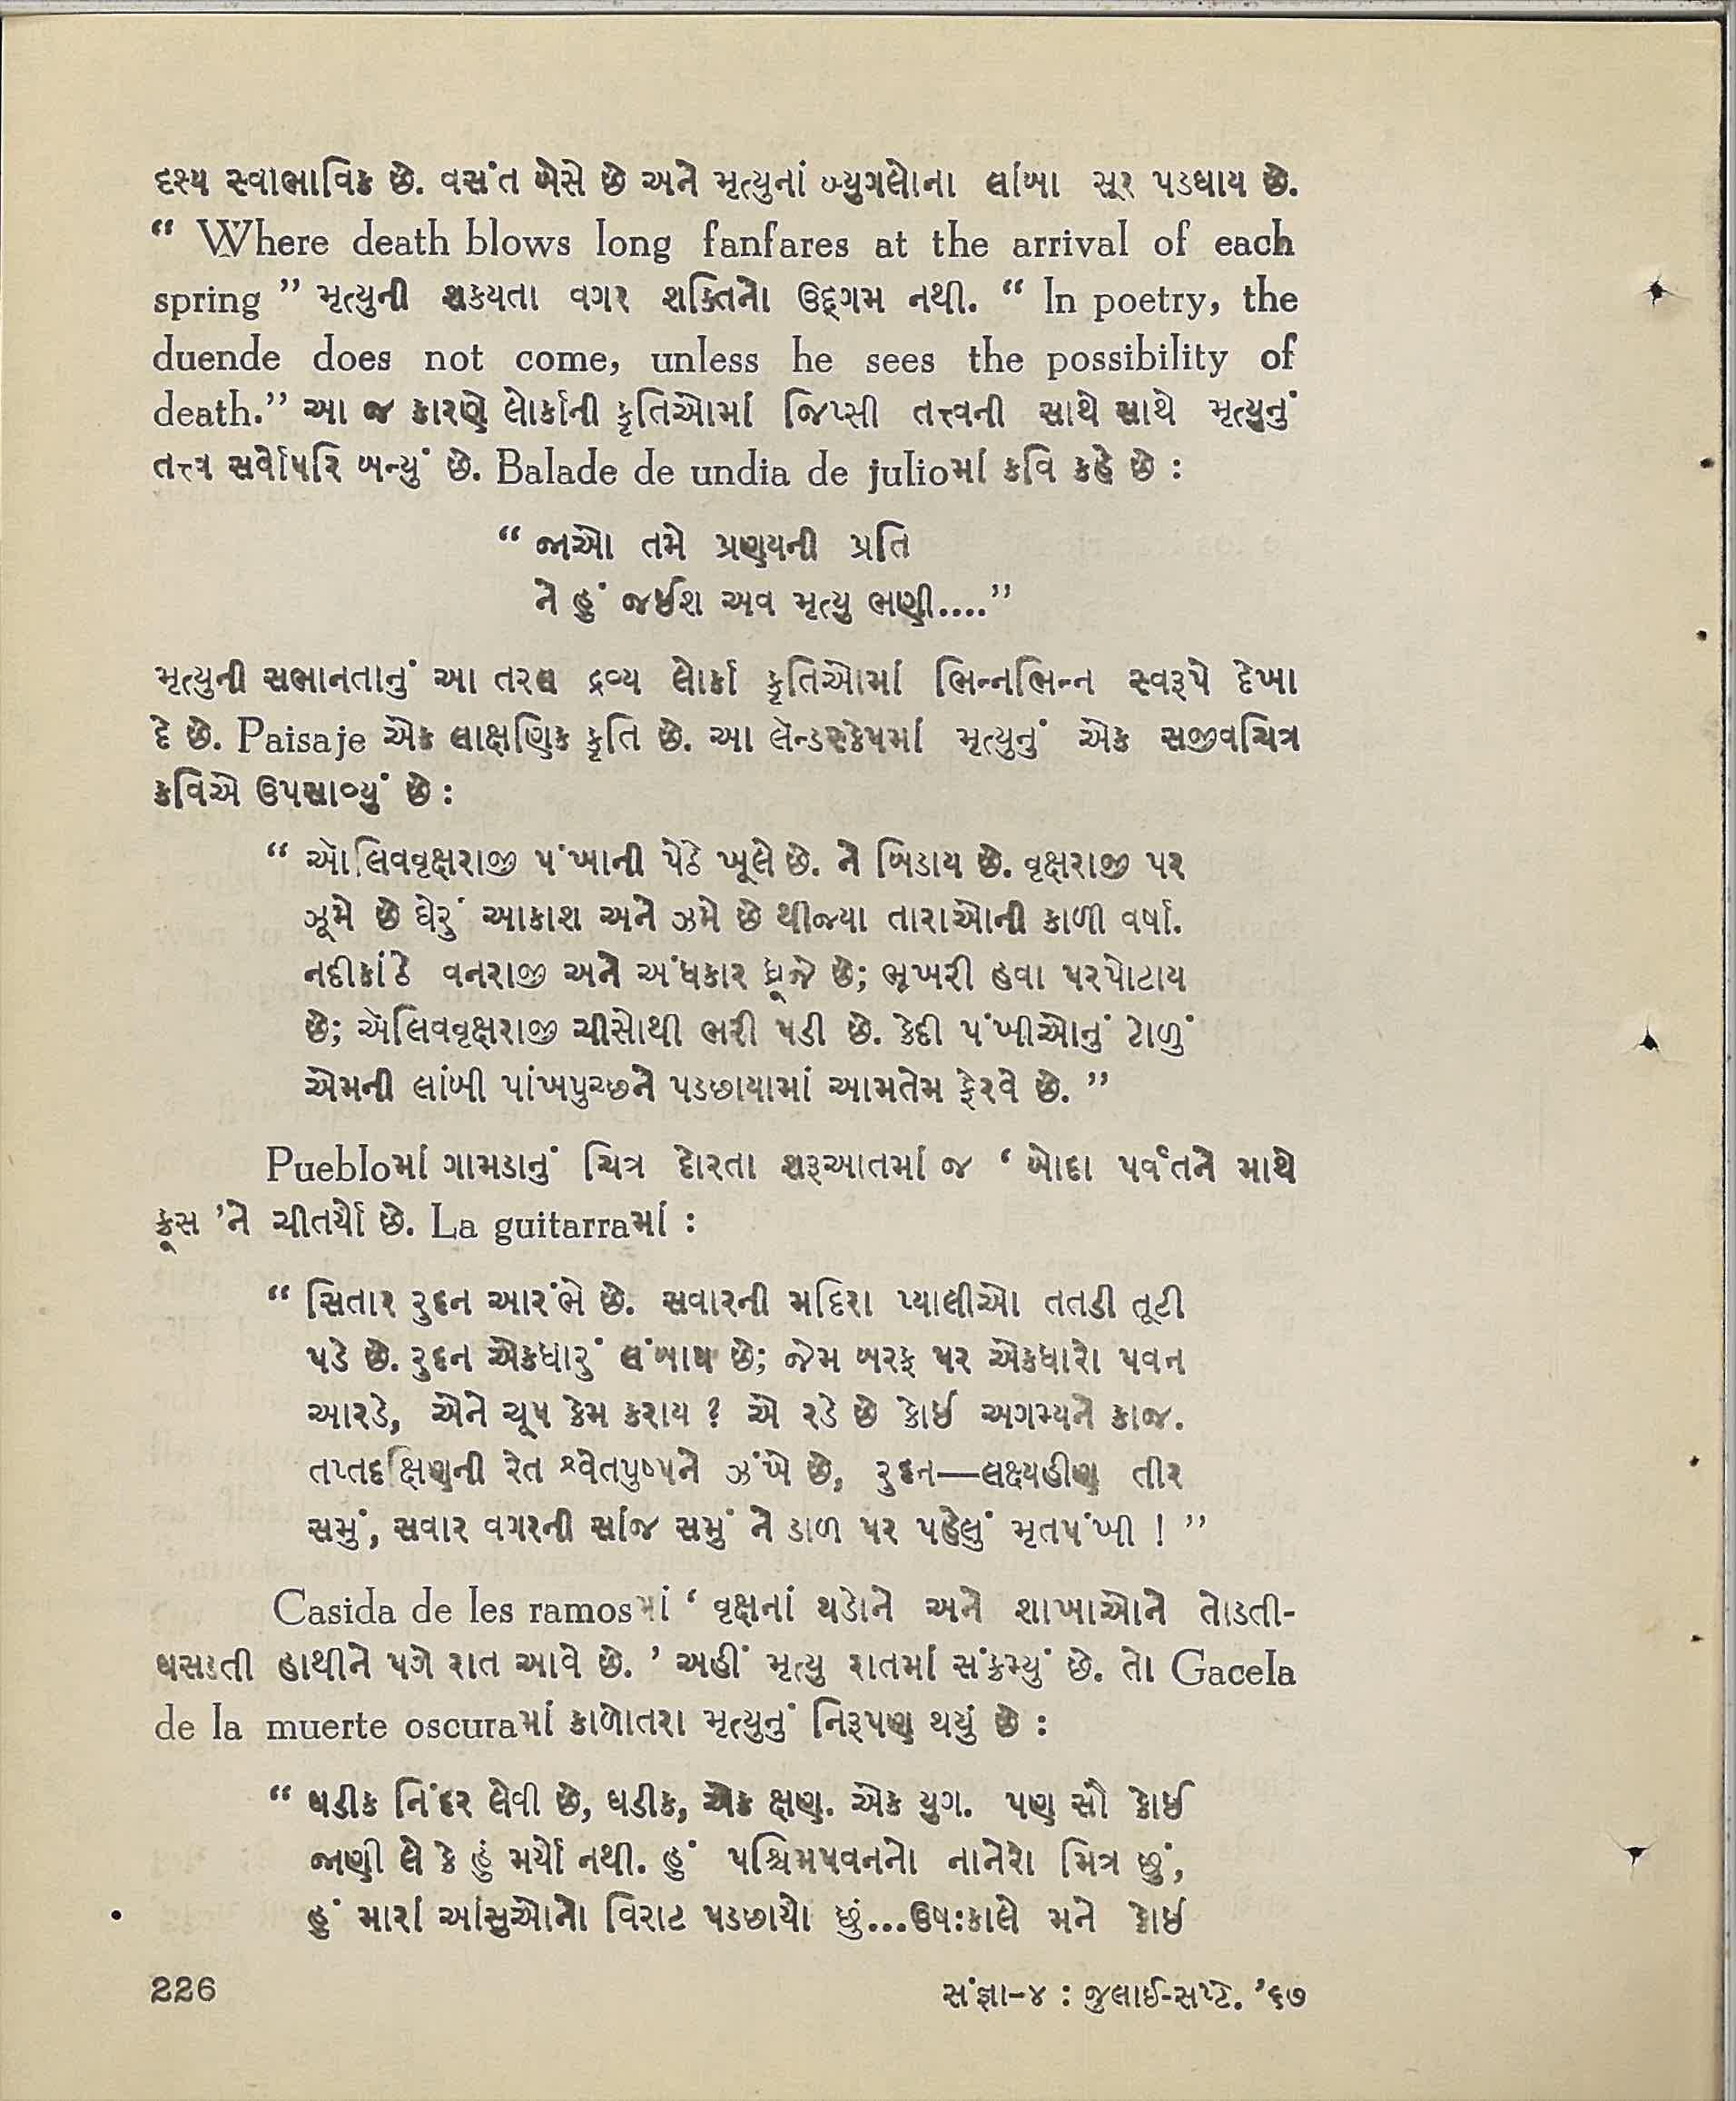 દશ્ય સ્વાભાવિક છે. વસંત બેસે છે અને મૃત્યુનાં બ્યુગલોના લાંબા સૂર પડઘાય છે.
“ Where death blows long fanfares at the arrival of each
spring ” મૃત્યુની શકયતા વગર શક્તિનો ઉદ્ગમ નથી. “ In poetry, the
duende does not come, unless he sees the possibility of
death.” આ જ કારણે લોર્કાની કૃતિઓમાં જિપ્સી તત્ત્વની સાથે સાથે મૃત્યુનું
તત્ત્વ સર્વોપરિ બન્યું છે. Balade de undia de julioમાં કવિ કહે છે :
“ જાઓ તમે પ્રણયની પ્રતિ
ને હું જઈશ અવ મૃત્યુ ભણી....”
મૃત્યુની સભાનતાનું આ તરલ દ્રવ્ય લોર્કા કૃતિઓમાં ભિન્નભિન્ન સ્વરૂપે દેખા
દે છે. Paisaje એક લાક્ષણિક કૃતિ છે. આ લૅન્ડસ્કેપમાં મૃત્યુનું એક સજીવચિત્ર
કવિએ ઉપસાવ્યું છે :
“ ઑલિવવૃક્ષરાજી પંખાની પેઠે ખૂલે છે. ને બિડાય છે. વૃક્ષરાજી પર
ઝૂમે છે ઘેરું આકાશ અને ઝમે છે થીજ્યા તારાઓની કાળી વર્ષા.
નદીકાંઠે વનરાજી અને અંધકાર ધ્રૂજે છે; ભૂખરી હવા પરપોટાય
છે; ઑલિવવૃક્ષરાજી ચીસોથી ભરી પડી છે. કેદી પંખીઓનું ટોળું
એમની લાંબી પાંખપુચ્છને પડછાયામાં આમતેમ ફેરવે છે. ”
Puebloમાં ગામડાનું ચિત્ર દોરતા શરૂઆતમાં જ ‘ બોદા પર્વતને માથે
ક્રૂસ ’ને ચીતર્યો છે. La guitarraમાં :
“ સિતાર રુદન આરંભે છે. સવારની મદિરા પ્યાલીઓ તતડી તૂટી
પડે છે. રુદન એકધારું લંબાય છે; જેમ બરફ પર એકધારો પવન
આરડે, એને ચૂપ કેમ કરાય ? એ રડે છે કોઈ અગમ્યને કાજ.
તપ્તદક્ષિણની રેત શ્વેતપુષ્પને ઝંખે છે, રુદન—લક્ષ્યહીણ તીર
સમું, સવાર વગરની સાંજ સમું ને ડાળ પર પહેલું મૃતપંખી ! ”
Casida de les ramosમાં ‘ વૃક્ષનાં થડોને અને શાખાઓને તોડતી-
ઘસડતી હાથીને પગે રાત આવે છે. ’ અહીં મૃત્યુ રાતમાં સંક્રમ્યું છે. તો Gacela
de la muerte oscuraમાં કાળોતરા મૃત્યુનું નિરૂપણ થયું છે :
“ ઘડીક નિંદર લેવી છે, ઘડીક, એક ક્ષણ. એક યુગ. પણ સૌ કોઈ
જાણી લે કે હું મર્યો નથી. હું પશ્ચિમપવનનો નાનેરો મિત્ર છું,
હું મારાં આંસુઓનો વિરાટ પડછાયો છું...ઉષઃકાલે મને કોઈ
226
સંજ્ઞા-૪ : જુલાઈ-સપ્ટે. ’૬૭